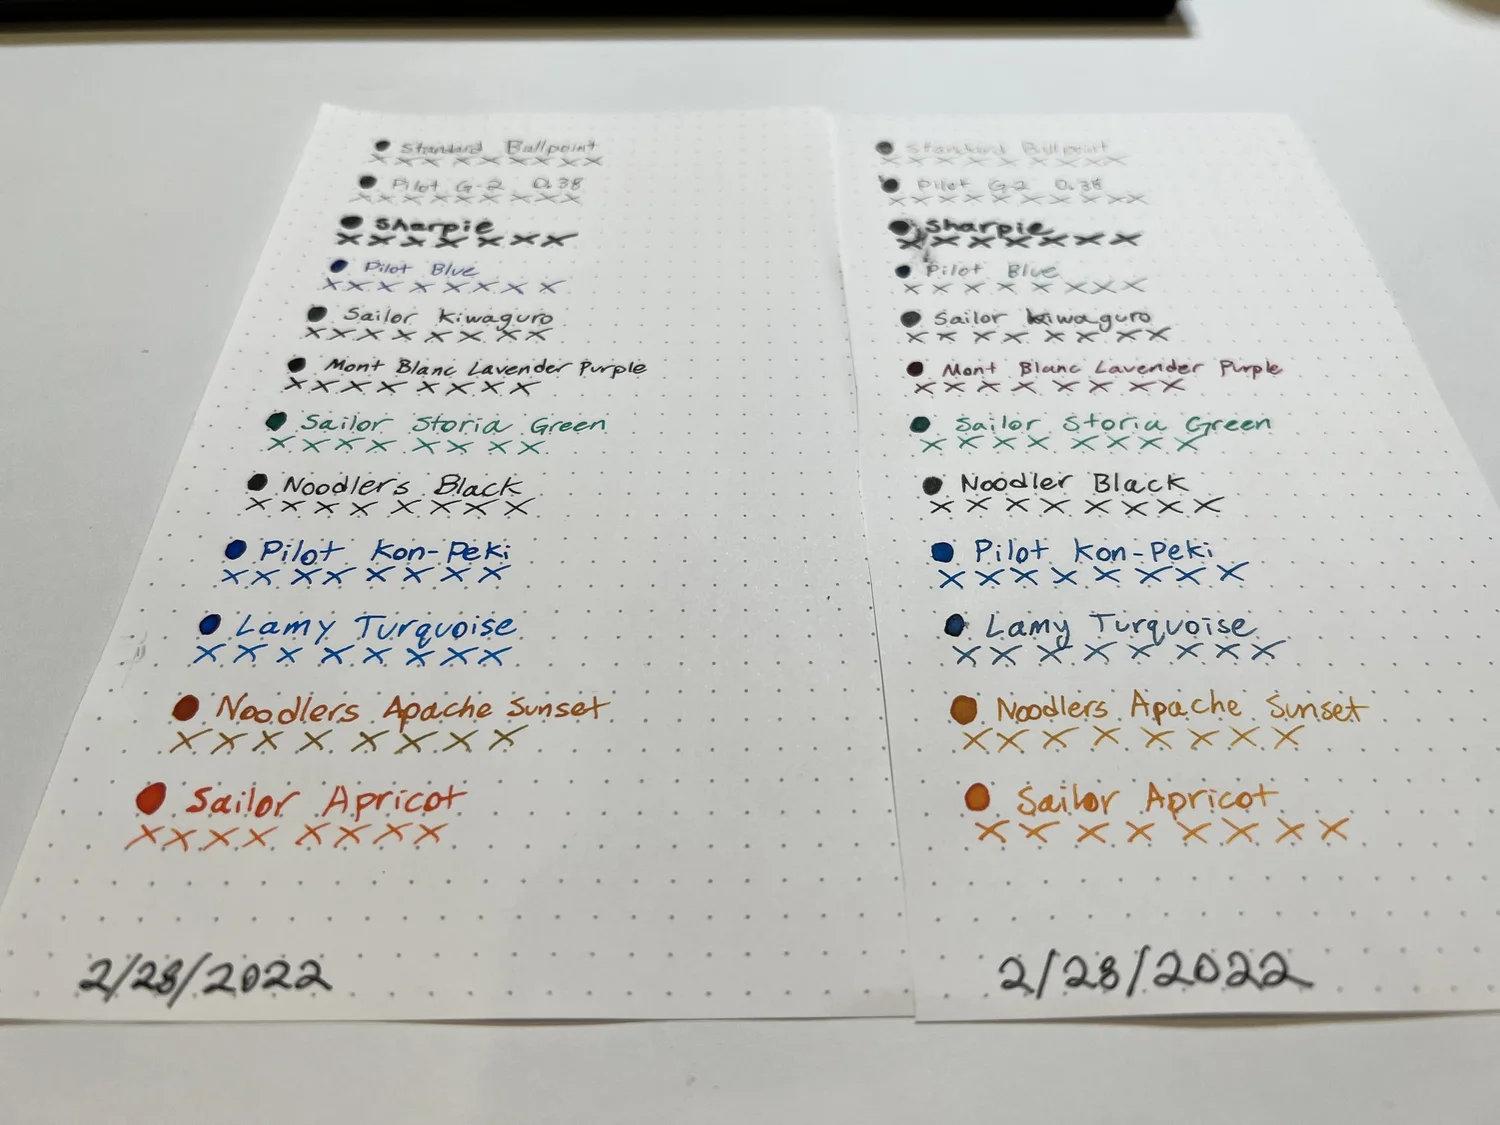 Standard Ballpoint
x x x x x x x x
Pilot G-2 0.38
x x x x x x x x
Sharpie
x x x x x x x
Pilot Blue
x x x x x x x x
Sailor Kiwaguro
x x x x x x x x
Mont Blanc Lavender Purple
x x x x x x x x
Sailor Storia Green
x x x x x x x x
Noodlers Black
x x x x x x x x
Pilot Kon-Peki
x x x x x x x x
Lamy Turquoise
x x x x x x x x
Noodlers Apache Sunset
x x x x x x x x
Sailor Apricot
x x x x x x x x
2/28/2022
Standard Ballpoint
x x x x x x x x
Pilot G-2 0.38
x x x x x x x x
Sharpie
x x x x x x x
Pilot Blue
x x x x x x x x
Sailor Kiwaguro
x x x x x x x x
Mont Blanc Lavender Purple
x x x x x x x x
Sailor Storia Green
x x x x x x x x
Noodler Black
x x x x x x x x
Pilot Kon-Peki
x x x x x x x x
Lamy Turquoise
x x x x x x x x
Noodlers Apache Sunset
x x x x x x x x
Sailor Apricot
x x x x x x x x
2/28/2022